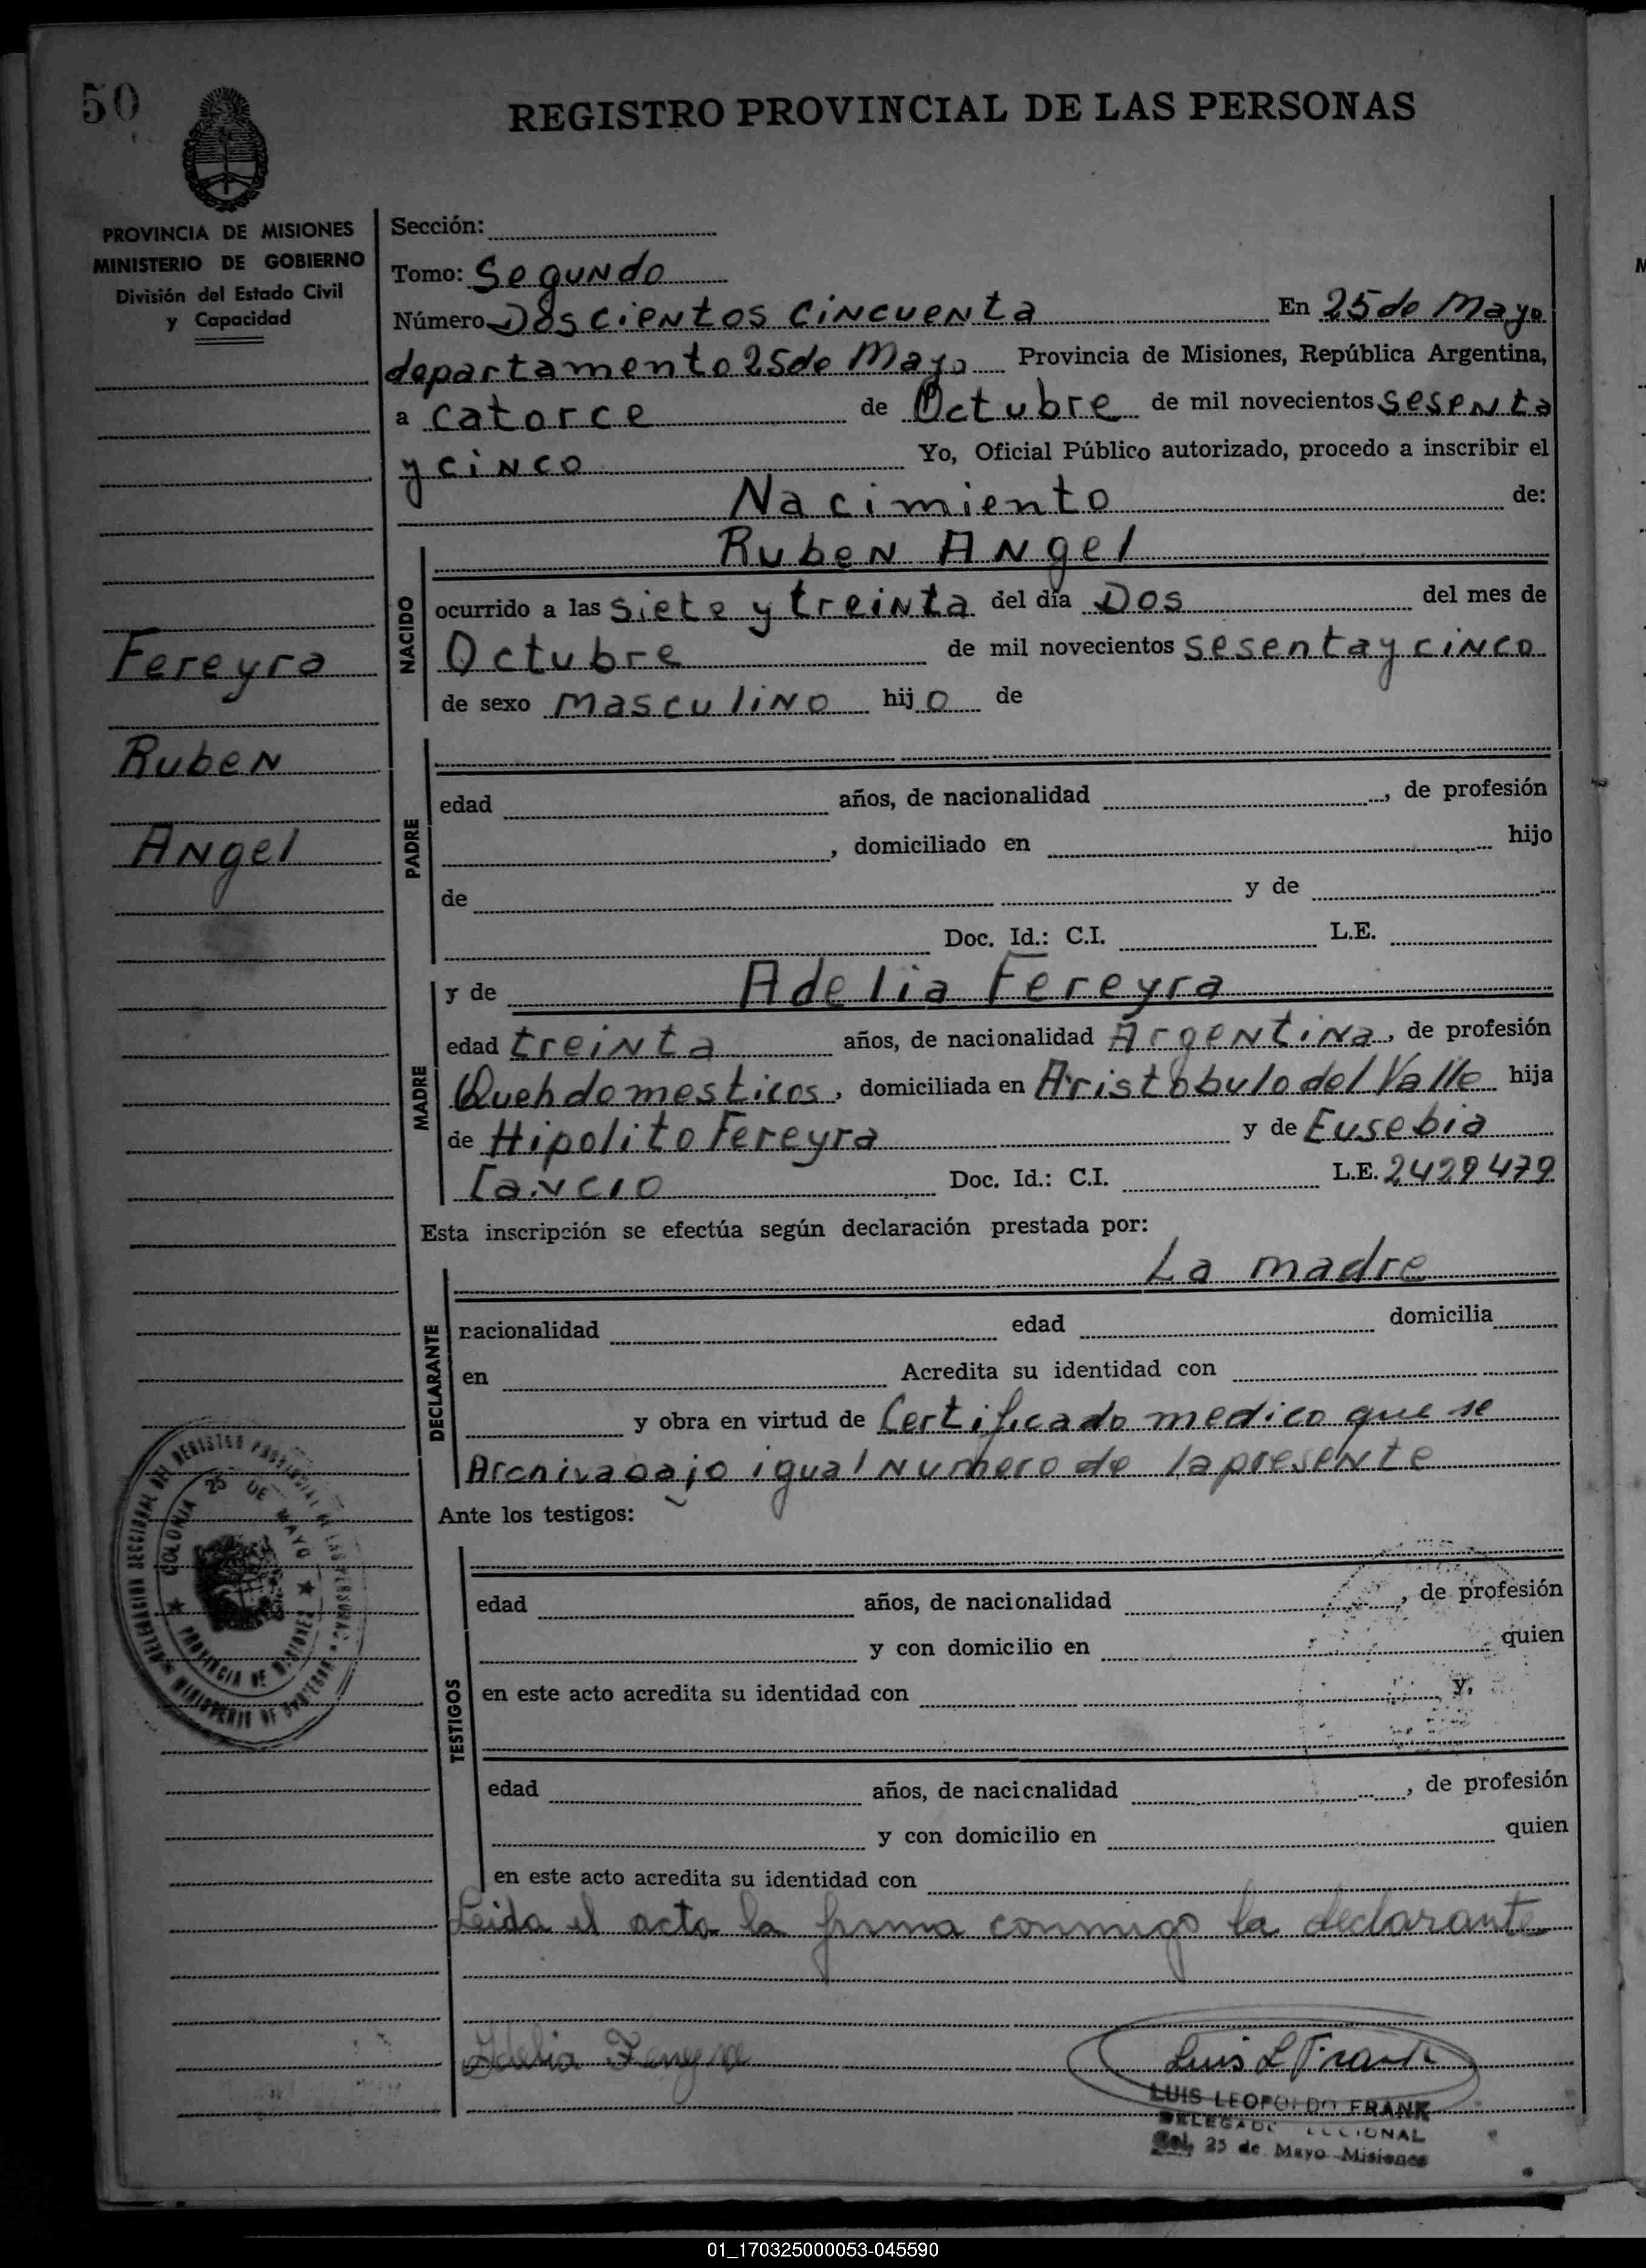 50
REGISTRO PROVINCIAL DE LAS PERSONAS
PROVINCIA DE MISIONES
MINISTERIO DE GOBIERNO
División del Estado Civil
y Capacidad
Fereyra
Ruben
Angel
Sección:
Tomo: Segundo
Número Doscientos Cincuenta En 25 de Mayo
departamento 25 de Mayo Provincia de Misiones, República Argentina,
a catorce de Octubre de mil novecientos sesenta
y cinco Yo, Oficial Público autorizado, procedo a inscribir el
Nacimiento de:
NACIDO
Ruben Angel
ocurrido a las siete y treinta del día Dos del mes de
Octubre de mil novecientos sesenta y cinco
de sexo masculino hijo de
PADRE
edad años, de nacionalidad , de profesión
, domiciliado en hijo
de y de
Doc. Id.: C.I. L.E.
MADRE
y de Adelia Fereyra
edad treinta años, de nacionalidad Argentina, de profesión
Queh domesticos, domiciliada en Aristobulo del Valle hija
de Hipolito Fereyra y de Eusebia
Cancio Doc. Id.: C.I. L.E. 2429479
Esta inscripción se efectúa según declaración prestada por:
DECLARANTE
La madre
nacionalidad edad domicilia
en Acredita su identidad con
y obra en virtud de Certificado medico que se
Archiva bajo igual numero de la presente
Ante los testigos:
TESTIGOS
edad años, de nacionalidad , de profesión
y con domicilio en quien
en este acto acredita su identidad con y,
edad años, de nacionalidad , de profesión
y con domicilio en quien
en este acto acredita su identidad con
Leida el acta la firma conmigo la declarante
Adelia Fereyra
Luis L Frank
LUIS LEOPOLDO FRANK
DELEGADO SECCIONAL
Col. 25 de Mayo Misiones
DELEGACION SECCIONAL DEL REGISTRO PROVINCIAL DE LAS PERSONAS
MINISTERIO DE GOBIERNO
COLONIA 25 DE MAYO
PROVINCIA DE MISIONES
01_170325000053-045590